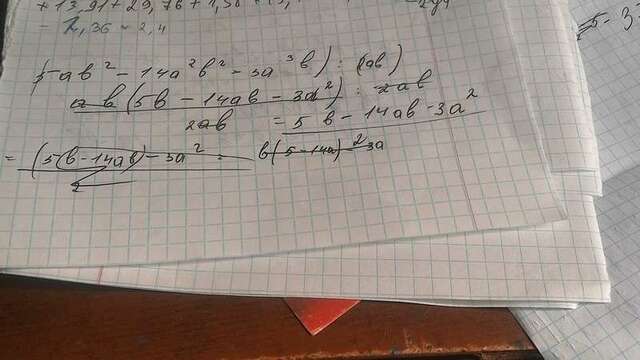 + 13,91 + 29,76 + 1,58 +
- 1,36 - 2,4
5ab² - 14a²b² - 3a³b) : (ab)
ab (5b - 14ab - 3a²) : 2ab
2ab = 5b - 14ab - 3a²
= (5b - 14ab) - 3a² = b(5 - 14a) - 3a
2